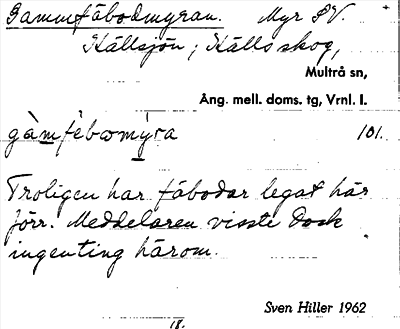 Gammfäbodmyran. Myr SV.
Källsjön, Källsskog,
Multrå sn,
Ång. mell. doms. tg, Vrnl. l.
gàmfèbωmýra 101.
Troligen har fäbodar legat här
förr. Meddelaren visste dock
ingenting härom.
Sven Hiller 1962
18.